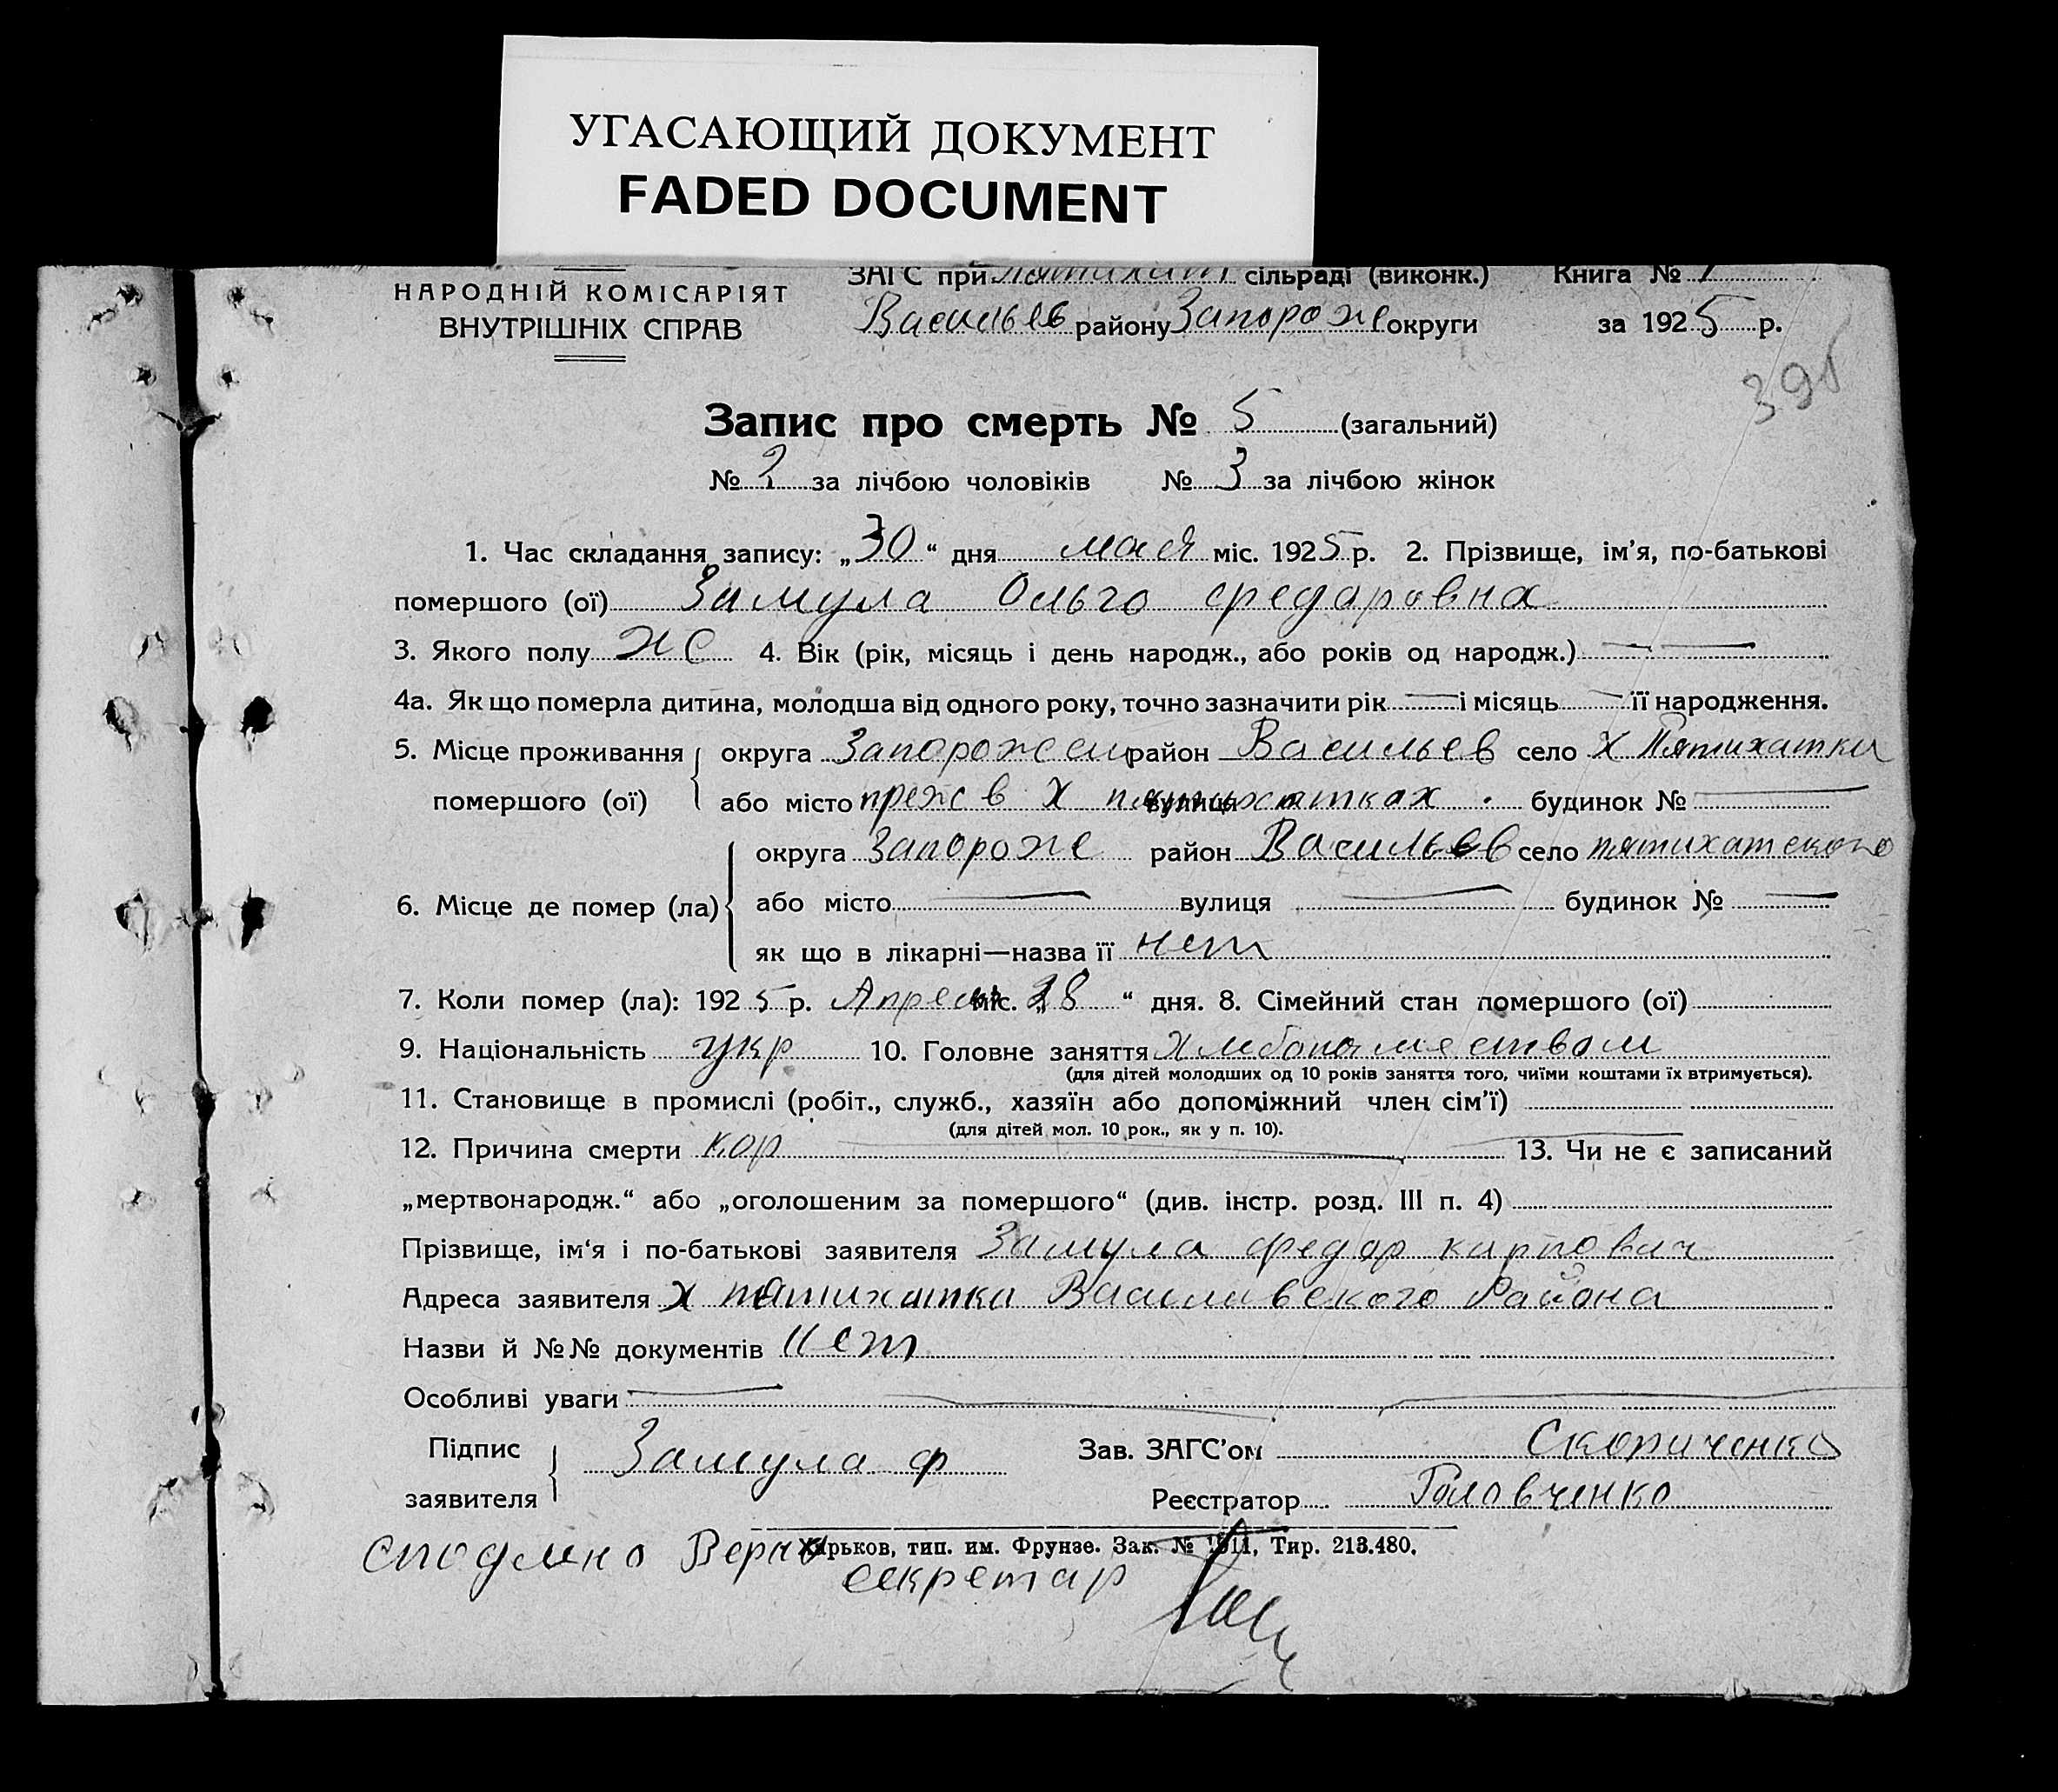 УГАСАЮЩИЙ ДОКУМЕНТ
FADED DOCUMENT
ЗАГС при Пятихат сільраді (виконк.) Книга № 1
НАРОДНІЙ КОМІСАРІЯТ
ВНУТРІШНІХ СПРАВ
Васильев району Запороже округи за 1925 р.
391
Запис про смерть № 5 (загальний)
№ 2 за лічбою чоловіків № 3 за лічбою жінок
1. Час складання запису: „30“ дня мая міс. 1925 р. 2. Прізвище, ім’я, по-батькові
помершого (ої) Замула Ольго Федаровна
3. Якого полу ж 4. Вік (рік, місяць і день народж., або років од народж.) — —
4а. Як що померла дитина, молодша від одного року, точно зазначити рік — і місяць — її народження.
5. Місце проживання округа Запорожен район Васильев село Х Пятихатки
помершого (ої) або місто преж в Х пятихатках вулиця будинок № —
округа Запороже район Васильев село пятихатского
6. Місце де помер (ла) або місто — вулиця — будинок № —
як що в лікарні—назва її нет
7. Коли помер (ла): 1925 р. Апреля міс. „28“ дня. 8. Сімейний стан помершого (ої)
9. Національність укр 10. Головне заняття
(для дітей молодших од 10 років заняття того, чиїми коштами їх втримується).
11. Становище в промислі (робіт., служб., хазяїн або допоміжний член сім’ї)
(для дітей мол. 10 рок., як у п. 10).
12. Причина смерти кор 13. Чи не є записаний
„мертвонародж.“ або „оголошеним за помершого“ (див. інстр. розд. III п. 4)
Прізвище, ім‘я і по-батькові заявителя Замула Федар карпович
Адреса заявителя х пятихатки Василивского Района
Назви й №№ документів нет
Особливі уваги —
Підпис Замула Ф Зав. ЗАГС’ом Скориченко
заявителя Реєстратор Головченко
Харьков, тип. им. Фрунзе. Зак. № 1911, Тир. 213.480.
Верно
секретар